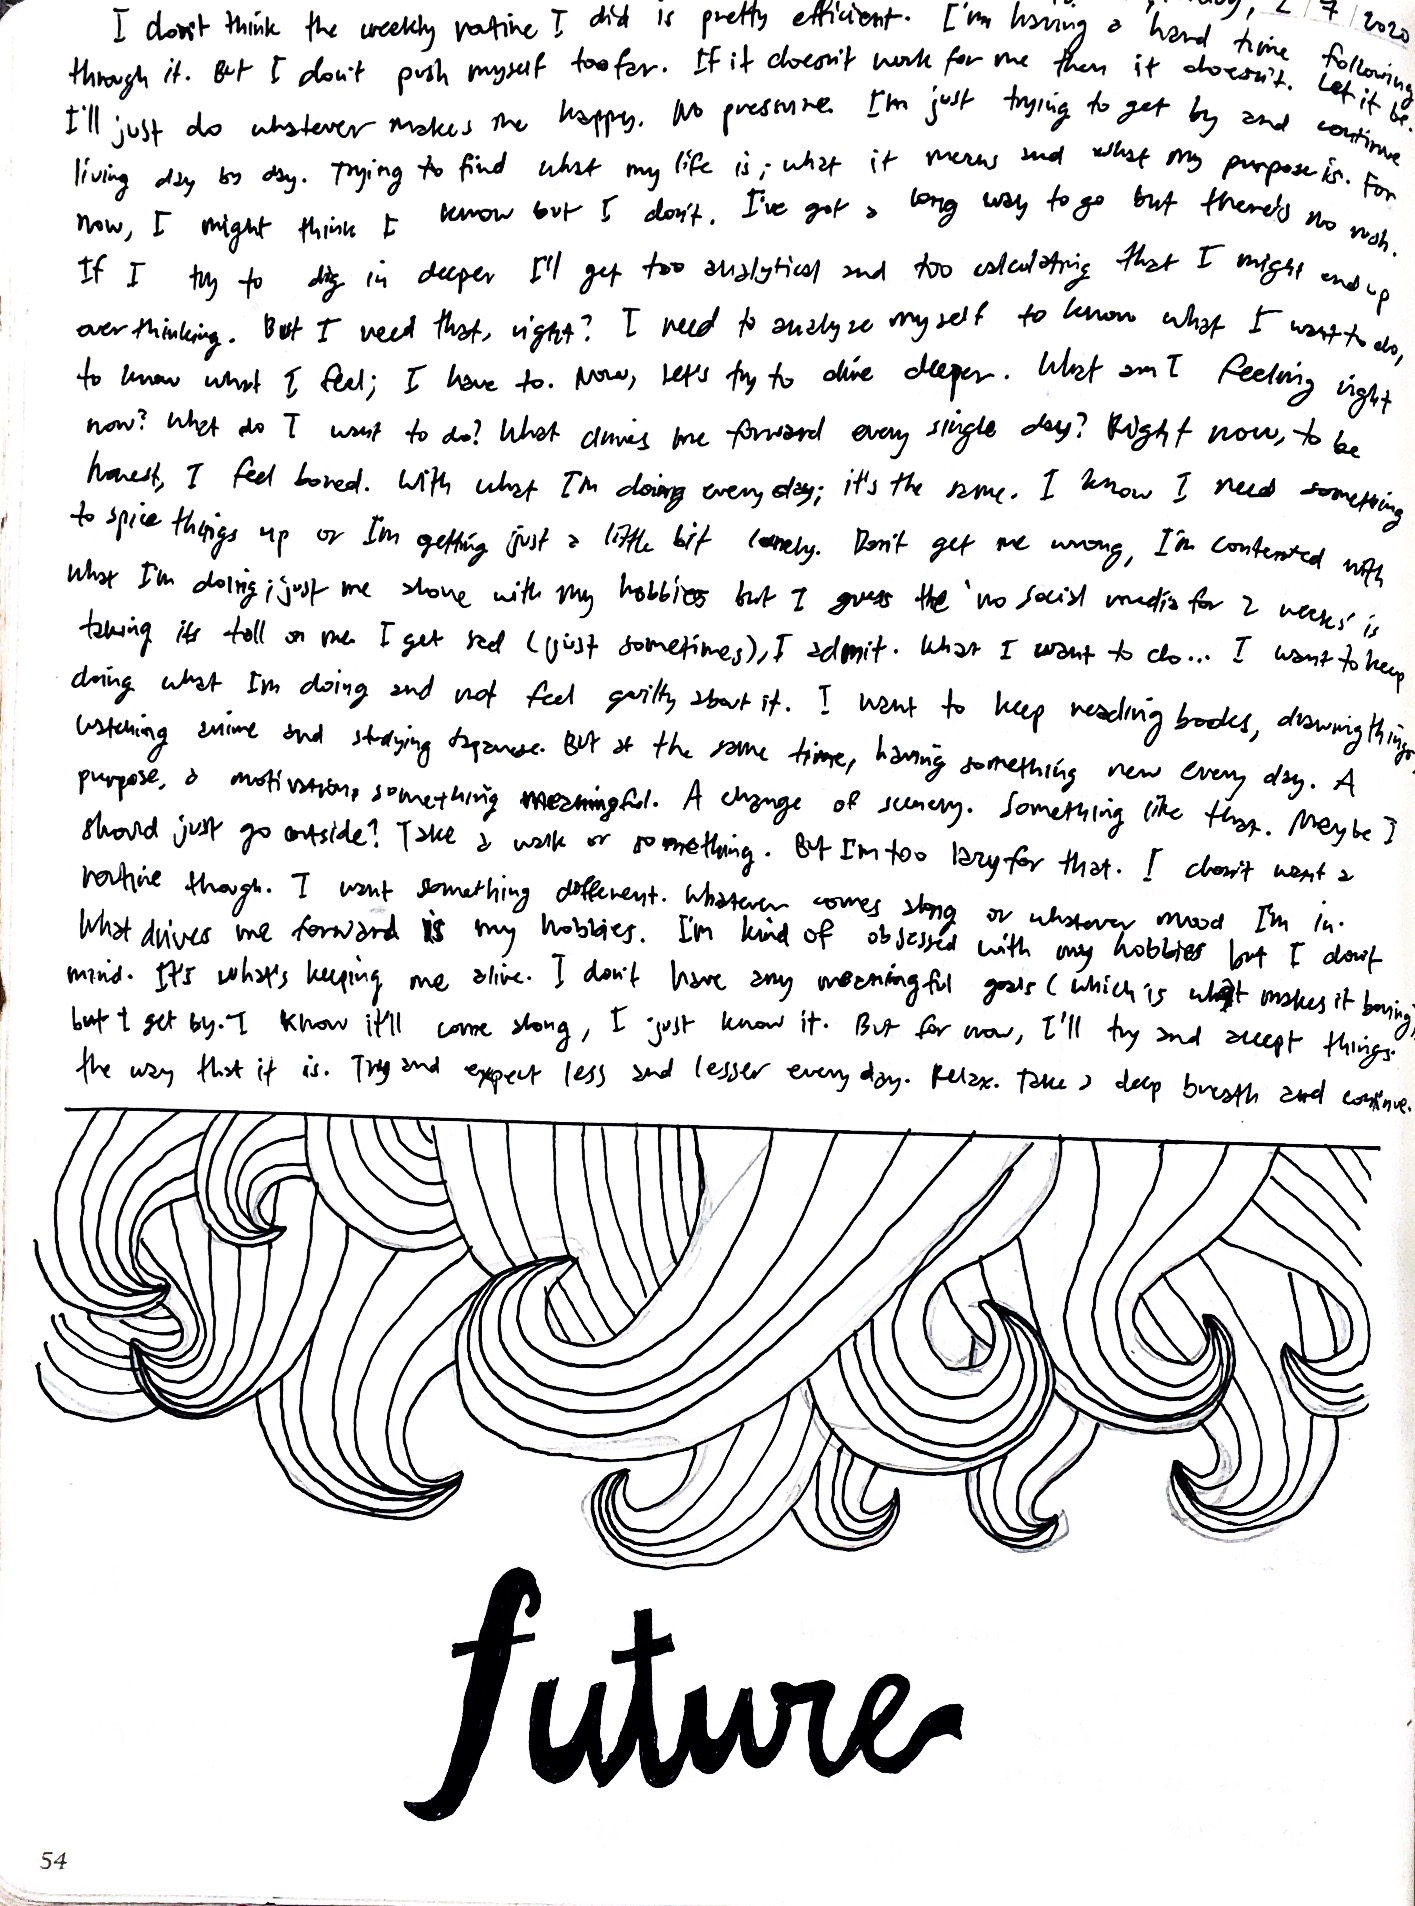 2/7/2020
I don't think the weekly routine I did is pretty efficient. I'm having a hard time following
through it. But I don't push myself too far. If it doesn't work for me then it doesn't. Let it be.
I'll just do whatever makes me happy. No pressure. I'm just trying to get by and continue
living day by day. Trying to find what my life is; what it means and what my purpose is. For
now, I might think I know but I don't. I've got a long way to go but there's no rush.
If I try to dig in deeper I'll get too analytical and too calculating that I might end up
overthinking. But I need that, right? I need to analyze myself to know what I want to do,
to know what I feel; I have to. Now, let's try to dive deeper. What am I feeling right
now? What do I want to do? What drives me forward every single day? Right now, to be
honest, I feel bored. With what I'm doing every day; it's the same. I know I need something
to spice things up or I'm getting just a little bit lonely. Don't get me wrong, I'm contented with
what I'm doing; just me alone with my hobbies but I guess the 'no social media for 2 weeks' is
taking its toll on me. I get sad (just sometimes), I admit. What I want to do... I want to keep
doing what I'm doing and not feel guilty about it. I want to keep reading books, drawing things,
watching anime and studying Japanese. But at the same time, having something new every day. A
purpose, a motivation, something meaningful. A change of scenery. Something like that. Maybe I
should just go outside? Take a walk or something. But I'm too lazy for that. I don't want a
routine though. I want something different. Whatever comes along or whatever mood I'm in.
What drives me forward is my hobbies. I'm kind of obsessed with my hobbies but I don't
mind. It's what's keeping me alive. I don't have any meaningful goals (which is what makes it boring)
but I get by. I know it'll come along, I just know it. But for now, I'll try and accept things
the way that it is. Try and expect less and lesser every day. Relax. Take a deep breath and continue.
future
54